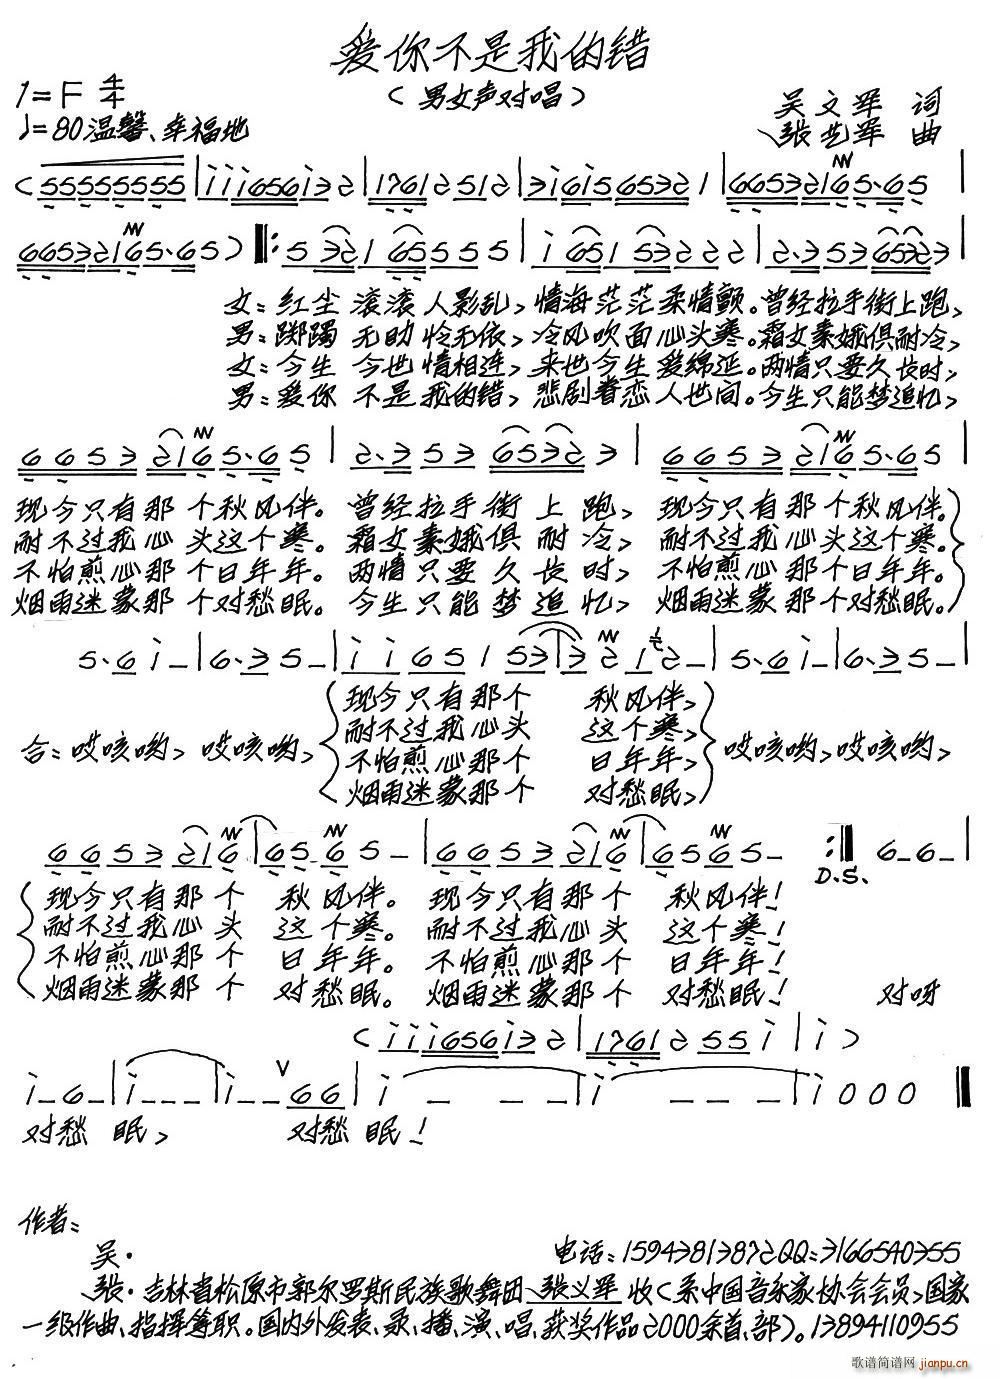 爱你不是我的错
1=F 4/4
(男女声对唱)
吴文军 词
♩=80温馨、幸福地
张艺军 曲
(55555555|iii656i32|17612512|3i6i565321|66532165·65|
66532165·65)‖:532165555|i6513222|2·3536532 3|
女:红尘 滚滚 人影乱, 情海茫茫柔情颤。曾经拉手街上跑,
男:踯躅 无助 怜无依, 冷风吹面心头寒。霜女素娥俱耐冷,
女:今生 今世 情相连, 来世今生爱绵延。两情只要久长时,
男:爱你 不是 我的错, 悲剧眷恋人世间。今生只能梦追忆,
66532165·65|2·35365323|66532165·65|
现今只有那个秋风伴。曾经拉手街上跑, 现今只有那个秋风伴。
耐不过我心头这个寒。霜女素娥俱耐冷, 耐不过我心头这个寒。
不怕煎心那个日年年。两情只要久长时, 不怕煎心那个日年年。
烟雨迷蒙那个对愁眠。今生只能梦追忆, 烟雨迷蒙那个对愁眠。
5·6i-|6·35-|ii65153|3212-|5·6i-|6·35-|
现今只有那个 秋风伴,
耐不过我心头 这个寒,
合:哎咳哟, 哎咳哟, 哎咳哟,哎咳哟,
不怕煎心那个 日年年,
烟雨迷蒙那个 对愁眠,
6653216|6565-|6653216|6565- :‖ 6-6-|
D.S.
现今只有那个 秋风伴。 现今只有那个 秋风伴!
耐不过我心头 这个寒。 耐不过我心头 这个寒!
不怕煎心那个 日年年。 不怕煎心那个 日年年!
烟雨迷蒙那个 对愁眠。 烟雨迷蒙那个 对愁眠! 对呀
(iii656i32|1761255i|i)
i-6-|i---|i--66|i---|i---|i000‖
对愁 眠, 对愁眠!
作者:
吴·
电话:15943813872QQ:3166540355
张·吉林省松原市郭尔罗斯民族歌舞团、张义军 收(系中国音乐家协会会员,国家
一级作曲、指挥等职。国内外发表、录、播、演、唱、获奖作品2000余首、部)。13894110955
歌谱简谱网 jianpu.cn